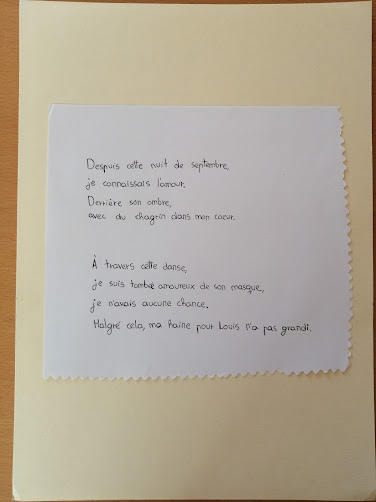 Despuis cette nuit de septembre,
je connaissais l'amour.
Derrière son ombre,
avec du chagrin dans mon coeur.
À travers cette danse,
je suis tombé amoureux de son masque,
je n'avais aucune chance.
Malgré cela, ma haine pour Louis n'a pas grandi.